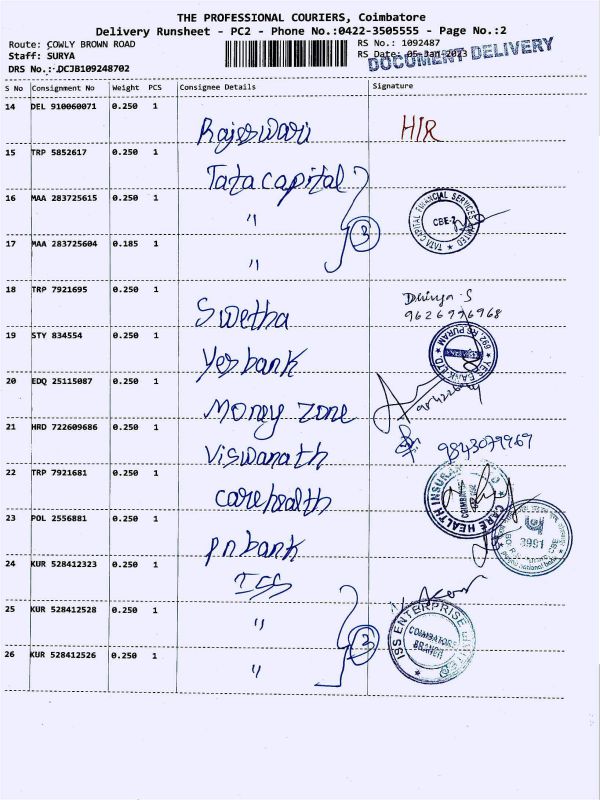 THE PROFESSIONAL COURIERS, Coimbatore
Delivery Runsheet - PC2 - Phone No.:0422-3505555 - Page No.:2
Route: COWLY BROWN ROAD
Staff: SURYA
DRS No.: DCJB109248702
RS No.: 1092487
RS Date: 05-Jan-2023
DOCUMENT DELIVERY
S No Consignment No Weight PCS Consignee Details Signature
14 DEL 910060071 0.250 1 Rajeswari HIR
15 TRP 5852617 0.250 1 Tata capital
16 MAA 283725615 0.250 1 " 3
TATA CAPITAL FINANCIAL SERVICES LIMITED
CBE-2
17 MAA 283725604 0.185 1 "
18 TRP 7921695 0.250 1 Swetha Dhivya S
9626776968
19 STY 834554 0.250 1 Yesbank
YES BANK LTD RS PURAM
20 EDQ 25115087 0.250 1 Money zone
21 HRD 722609686 0.250 1 Viswanath 9843079969
22 TRP 7921681 0.250 1 carehealth
CARE HEALTH INSURANCE
COIMBATORE
23 POL 2556881 0.250 1 pnbank
3991
punjab national bank
24 KUR 528412323 0.250 1 ISS
25 KUR 528412528 0.250 1 " 3
ISS ENTERPRISE LIMITED
COIMBATORE
BRANCH
26 KUR 528412526 0.250 1 "